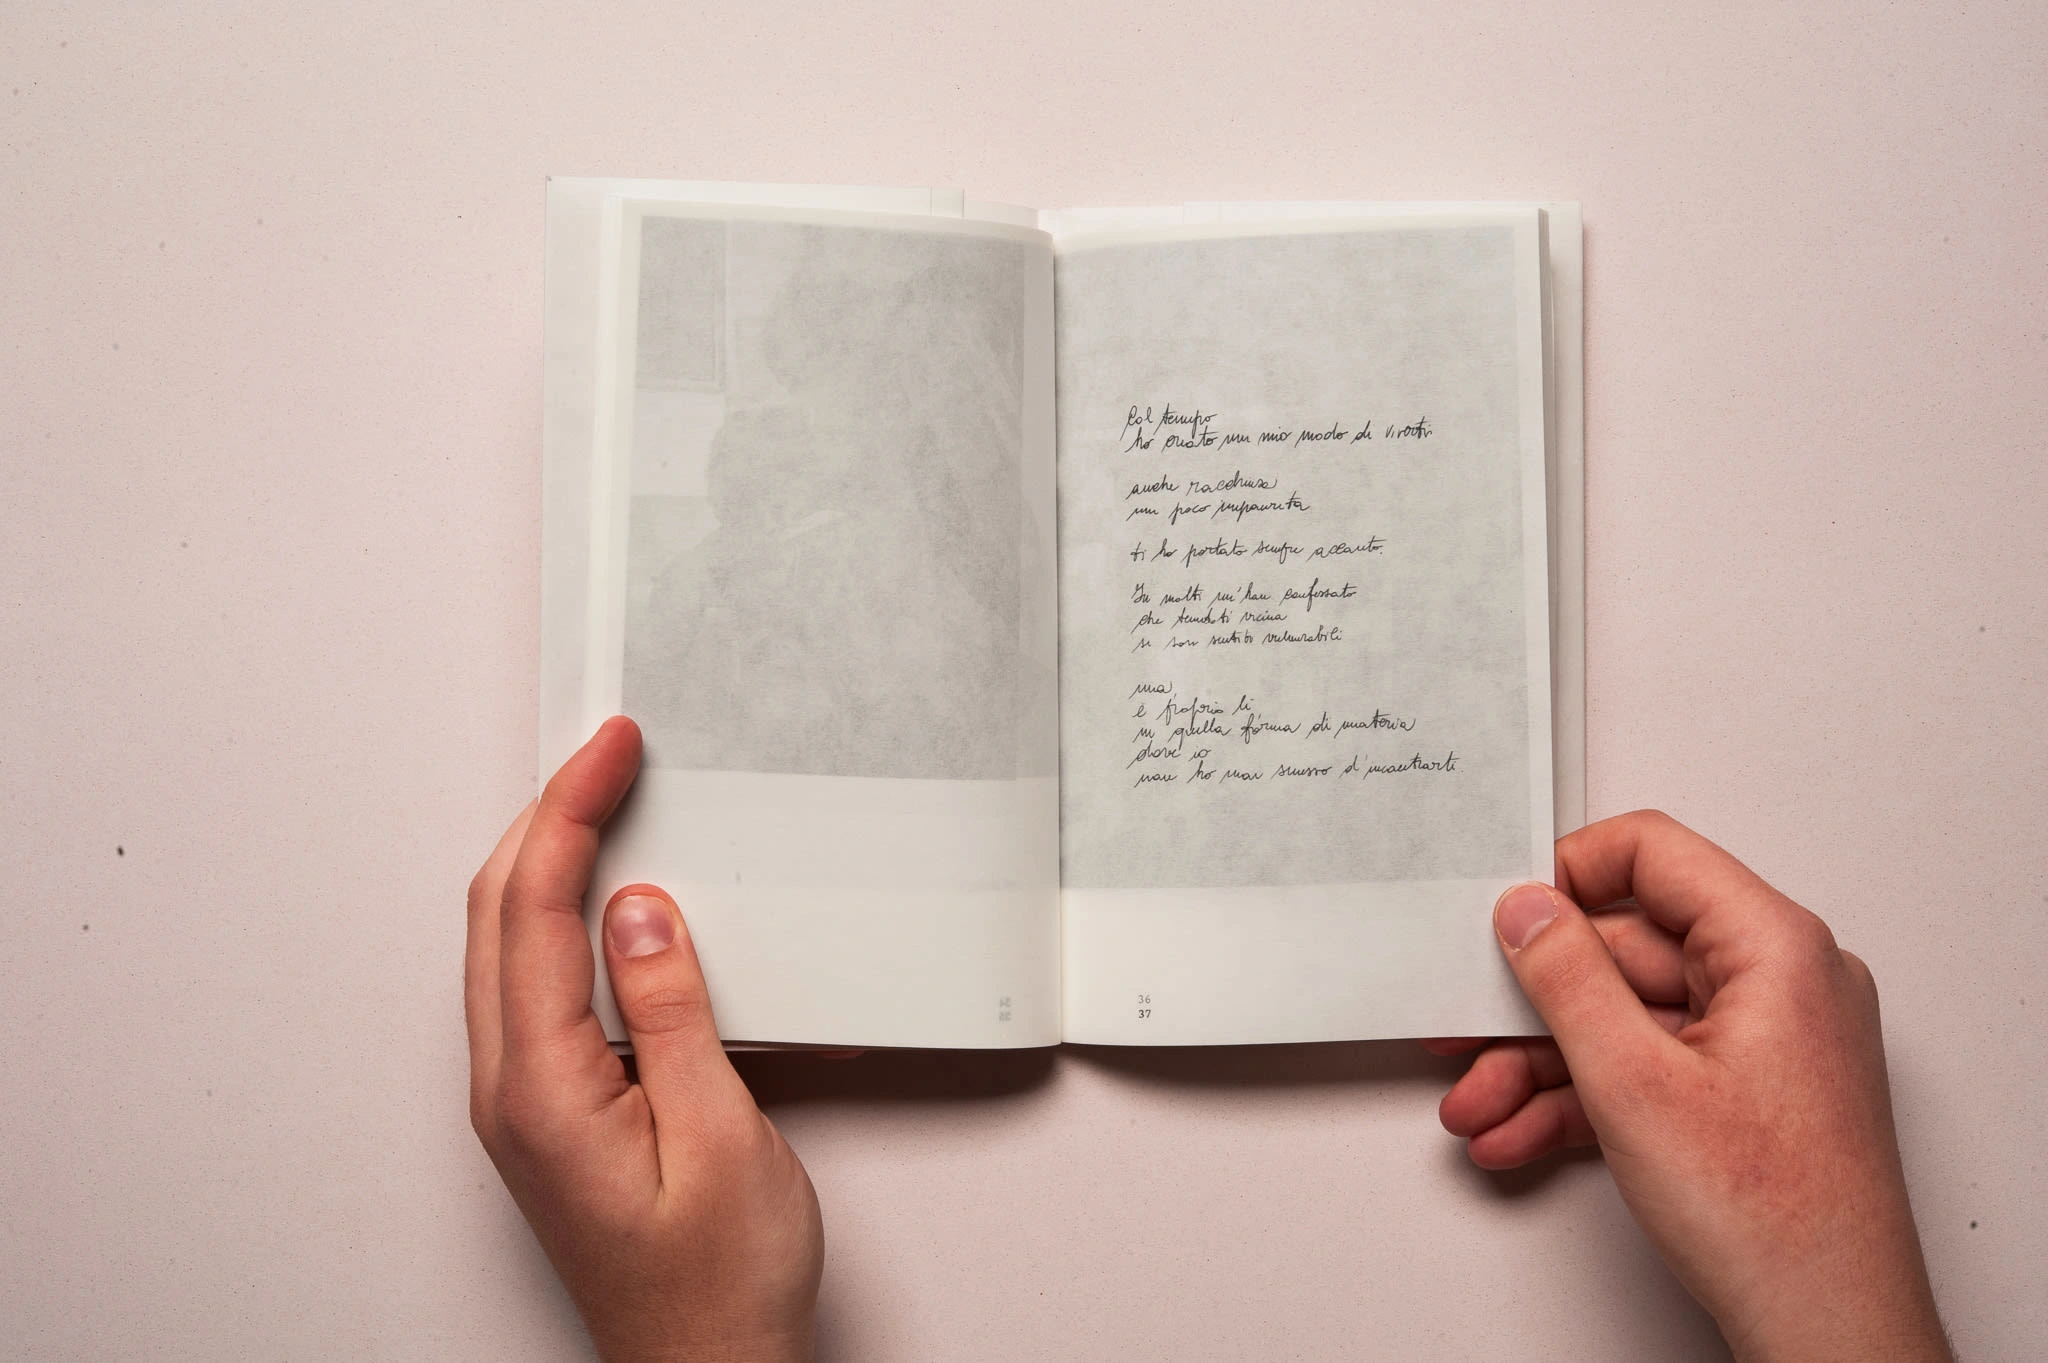 Col tempo
ho creato un mio modo di viverti
anche racchiusa
un poco impaurita
ti ho portato sempre accanto.
In molti m'han confessato
che tenendoti vicina
si son sentiti vulnerabili
ma,
è proprio lì
in quella forma di materia
dove io
non ho mai smesso d'incontrarti.
36
37